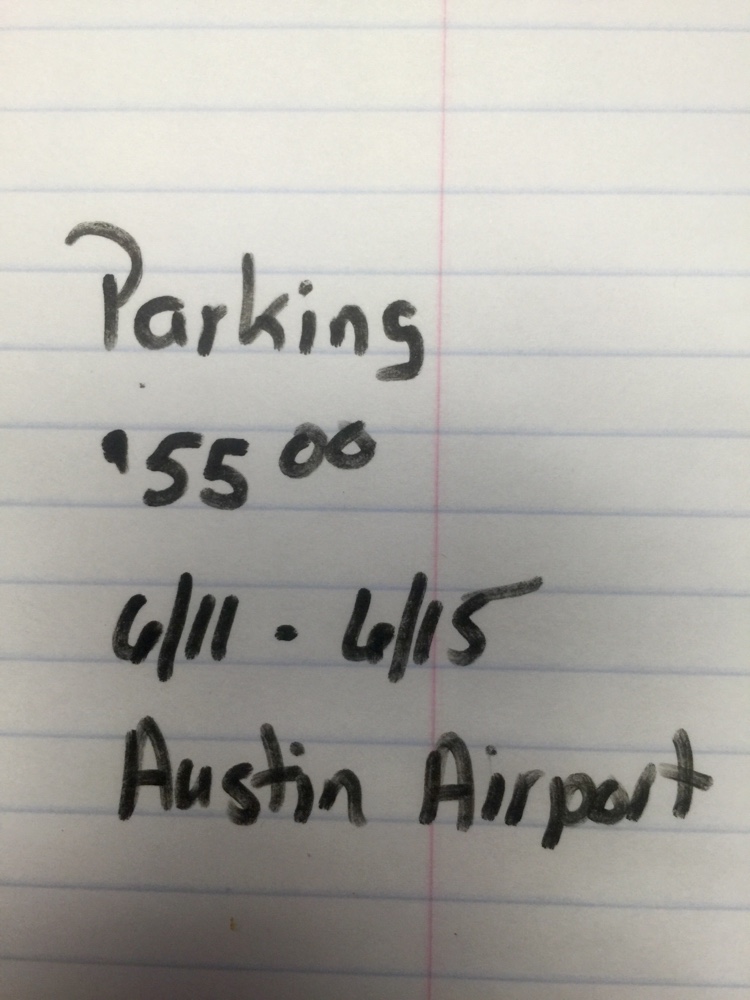 Parking
$55 00
6/11 - 6/15
Austin Airport